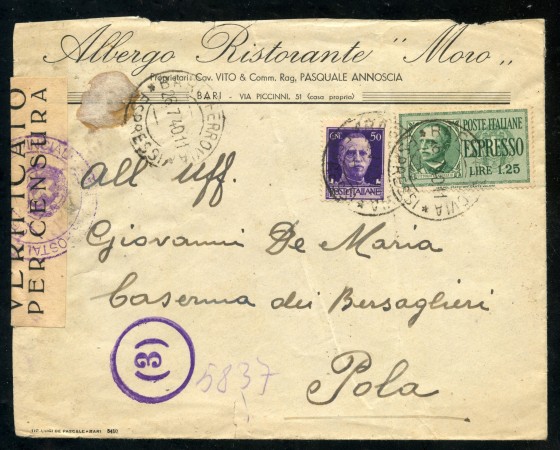 Albergo Ristorante "Moro"
Proprietari: Cav. VITO & Comm. Rag. PASQUALE ANNOSCIA
BARI - VIA PICCINNI, 51 (casa propria)
VERIFICATO
PER CENSURA
BARI FERROVIA
26.7.40.11
ESPRESSI
CENT. 50
POSTE ITALIANE
POSTE ITALIANE
ESPRESSO
LIRE 1.25
All' uff.
Giovanni De Maria
Caserma dei Bersaglieri
Pola
(3)
5837